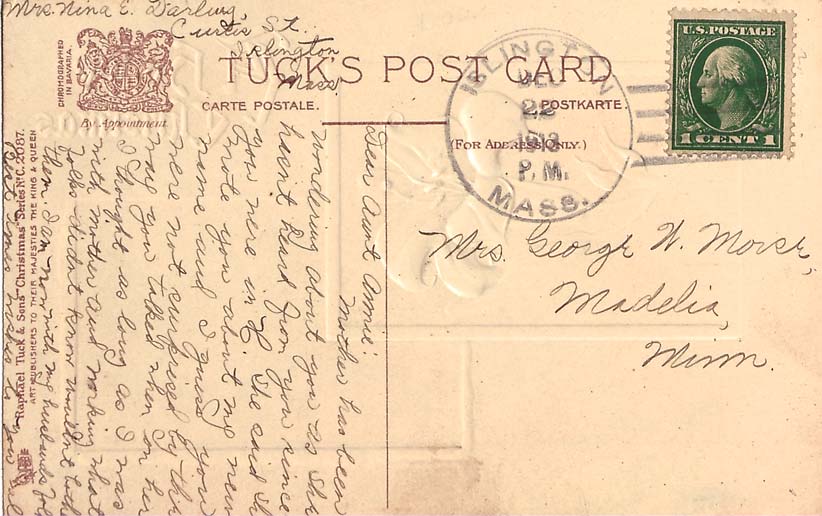 Mrs. Nina E. Darling,
Curtis St.
Islington
Mass
CHROMOGRAPHED
IN BAVARIA.
By Appointment.
TUCK'S POST CARD
CARTE POSTALE.
POSTKARTE.
(FOR ADDRESS ONLY.)
ISLINGTON
DEC
22
1913
P.M.
MASS.
U.S. POSTAGE
1 CENT 1
Mrs. George W. Morse,
Madelia,
Minn.
Dear Aunt Annie:
Mother has been
wondering about you as she
havent heard from you since
you were in She said she
wrote you about my new
name and I guess you
were not surprised by the
way you talked when on here
I thought as long as I was
with mother and working what
folks didn't know wouldn't
them I am now with my husbands
Best Xmas wishes to you
Raphael Tuck & Sons' "Christmas" Series No. C. 2087.
ART PUBLISHERS TO THEIR MAJESTIES THE KING & QUEEN